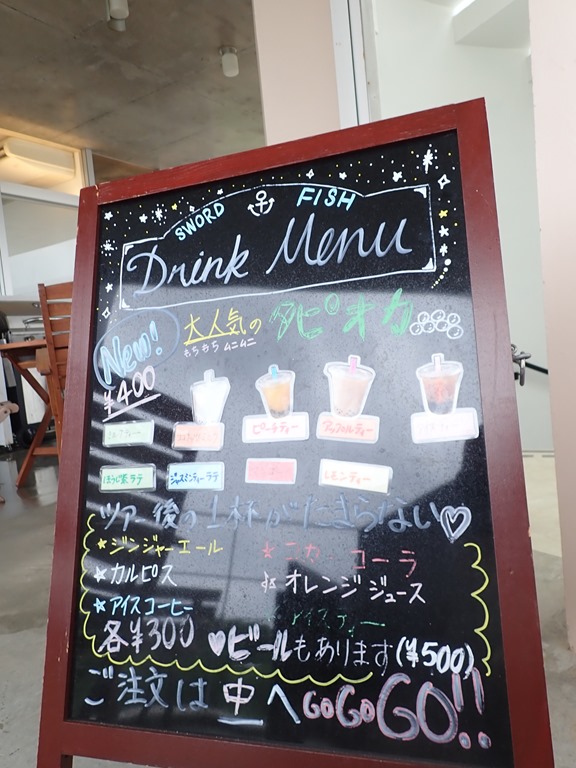 SWORD FISH
Drink Menu
New!
大人気の タピオカ
もちもち ムニムニ
¥400
ピーチティー
アップルティー
ほうじ茶ラテ
ジャスミンティーラテ
レモンティー
ツアー後の1杯がたまらない♡
☆ジンジャーエール
☆コカ・コーラ
☆カルピス
☆オレンジジュース
☆アイスコーヒー
アイスティー
各¥300
♥ビールもあります(¥500)
ご注文は中へ GO GO GO!!